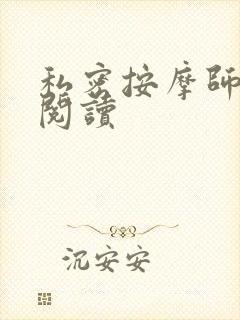 私密按摩師
閱讀
沉安安